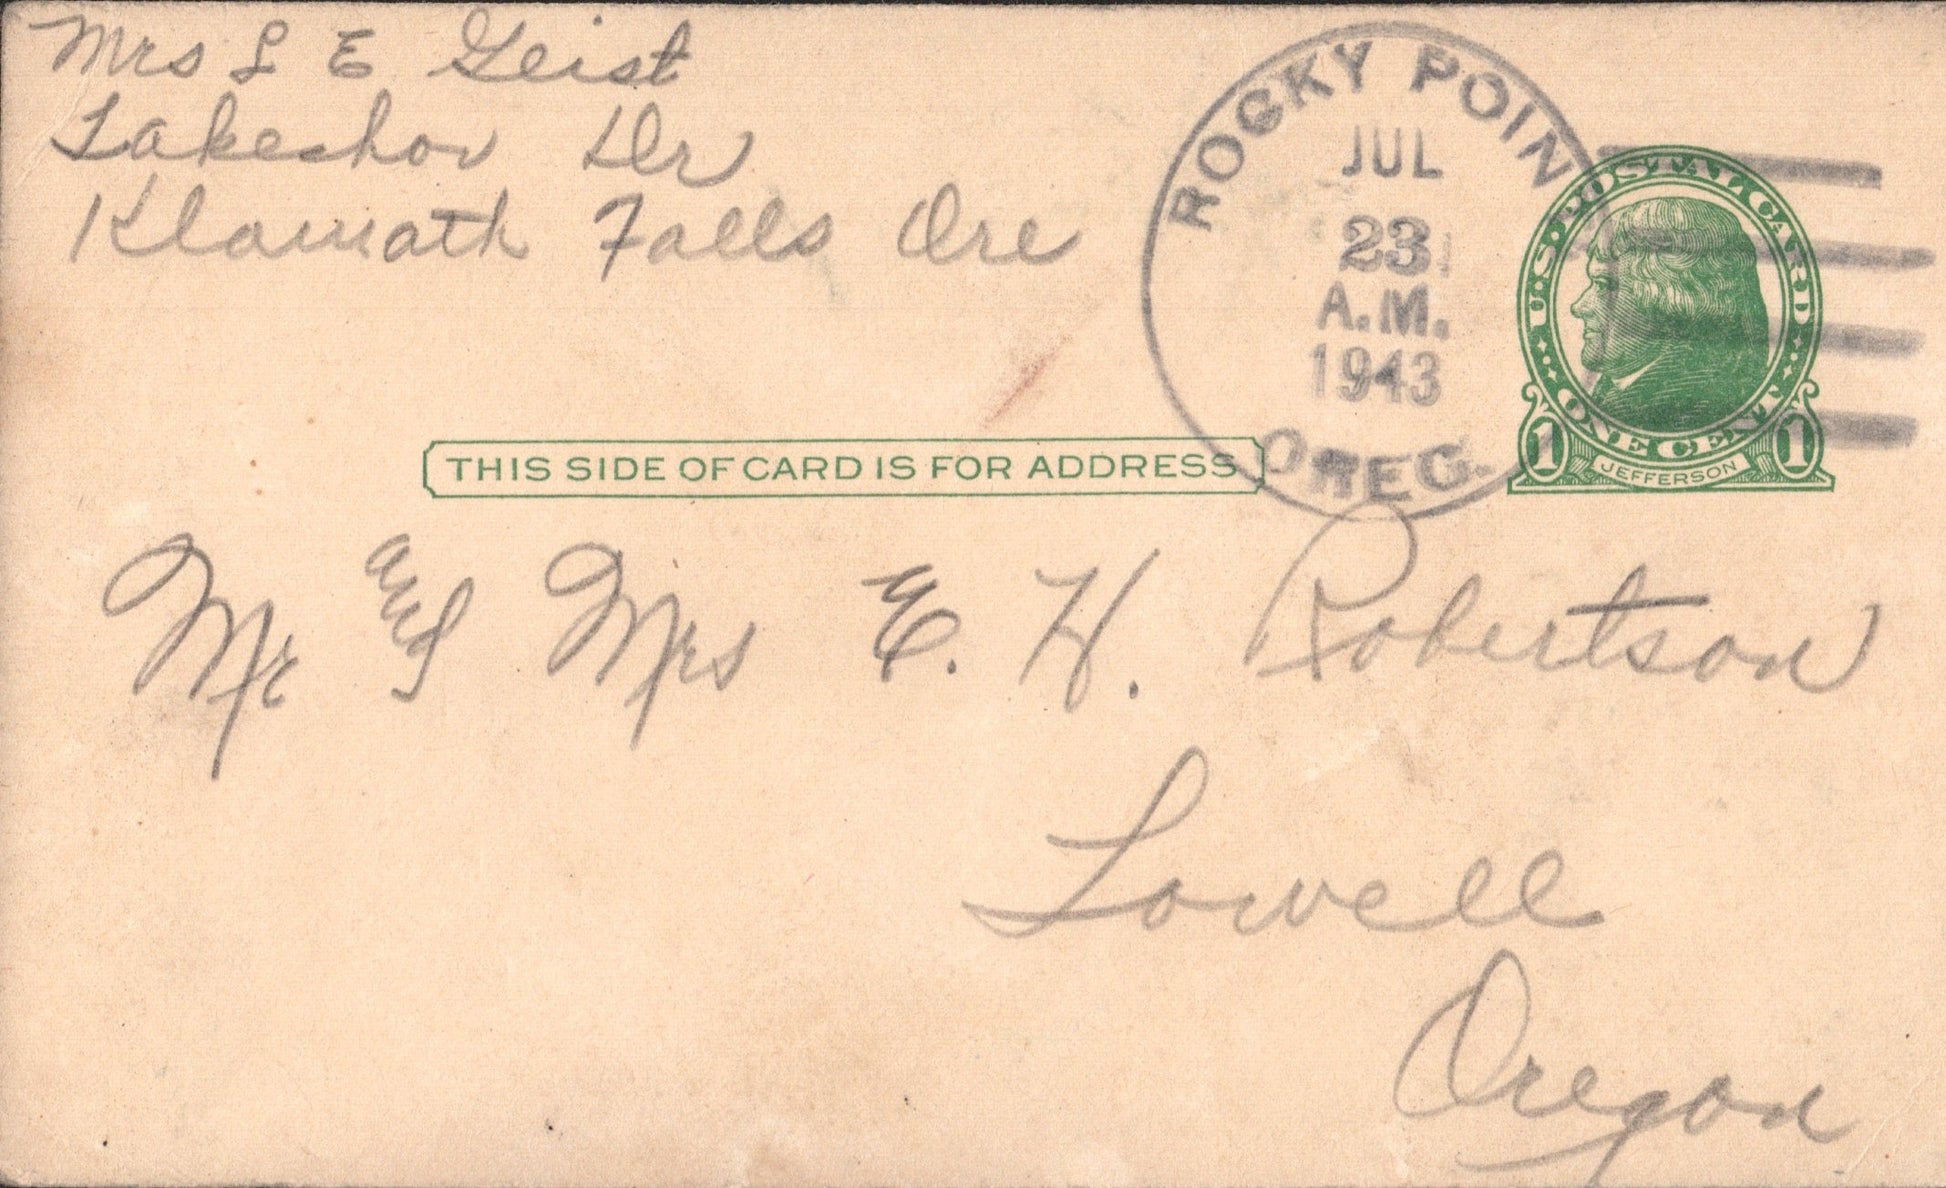 Mrs L E Geist
Lakeshor Dr
Klamath Falls Ore
ROCKY POIN
JUL
23
A.M.
1943
OREG.
U.S. POSTAL CARD
ONE CENT
1 JEFFERSON 1
THIS SIDE OF CARD IS FOR ADDRESS
Mr and Mrs E. H. Robertson
Lowell
Oregon